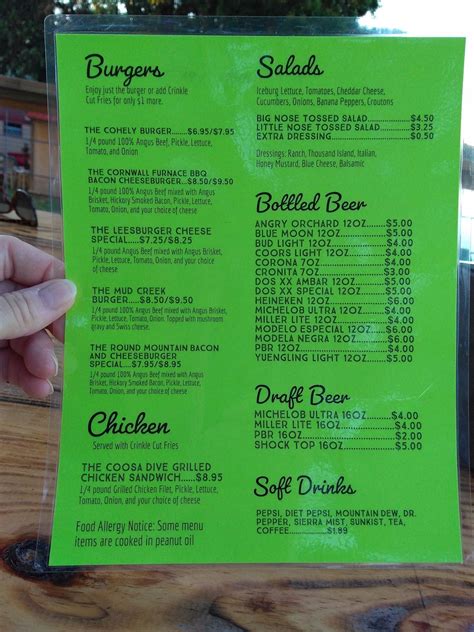 Burgers
Enjoy just the burger or add Crinkle
Cut Fries for only $1 more.
THE COHELY BURGER......$6.95/$7.95
1/4 pound 100% Angus Beef, Pickle, Lettuce,
Tomato, and Onion
THE CORNWALL FURNACE BBQ
BACON CHEESEBURGER...$8.50/$9.50
1/4 pound 100% Angus Beef mixed with Angus
Brisket, Hickory Smoked Bacon, Pickle, Lettuce,
Tomato, Onion, and your choice of cheese
THE LEESBURGER CHEESE
SPECIAL.....$7.25/$8.25
1/4 pound 100% Angus Beef mixed with Angus Brisket,
Pickle, Lettuce, Tomato, Onion, and your choice
of cheese
THE MUD CREEK
BURGER.....$8.50/$9.50
1/4 pound 100% Angus Beef mixed with Angus Brisket,
Pickle, Lettuce, Tomato, Onion. Topped with mushroom
gravy and Swiss cheese.
THE ROUND MOUNTAIN BACON
AND CHEESEBURGER
SPECIAL....$7.95/$8.95
1/4 pound 100% Angus Beef mixed with Angus
Brisket, Hickory Smoked Bacon, Pickle, Lettuce,
Tomato, Onion, and your choice of cheese
Chicken
Served with Crinkle Cut Fries
THE COOSA DIVE GRILLED
CHICKEN SANDWICH......$8.95
1/4 pound Grilled Chicken Filet, Pickle, Lettuce,
Tomato, Onion, and your choice of cheese
Food Allergy Notice: Some menu
items are cooked in peanut oil
Salads
Iceburg Lettuce, Tomatoes, Cheddar Cheese,
Cucumbers, Onions, Banana Peppers, Croutons
BIG NOSE TOSSED SALAD..........$4.50
LITTLE NOSE TOSSED SALAD.....$3.25
EXTRA DRESSING......................$0.50
Dressings: Ranch, Thousand Island, Italian,
Honey Mustard, Blue Cheese, Balsamic
Bottled Beer
ANGRY ORCHARD 12OZ.....$5.00
BLUE MOON 12OZ..............$5.00
BUD LIGHT 12OZ................$4.00
COORS LIGHT 12OZ............$4.00
CORONA 7OZ....................$4.00
CRONITA 7OZ....................$3.00
DOS XX AMBAR 12OZ.........$5.00
DOS XX SPECIAL 12OZ........$5.00
HEINEKEN 12OZ.................$6.00
MICHELOB ULTRA 12OZ......$4.00
MILLER LITE 12OZ..............$4.00
MODELO ESPECIAL 12OZ.....$6.00
MODELA NEGRA 12OZ........$6.00
PBR 12OZ.........................$4.00
YUENGLING LIGHT 12OZ.....$5.00
Draft Beer
MICHELOB ULTRA 16OZ.......$4.00
MILLER LITE 16OZ...............$4.00
PBR 16OZ..........................$2.00
SHOCK TOP 16OZ................$5.00
Soft Drinks
PEPSI, DIET PEPSI, MOUNTAIN DEW, DR.
PEPPER, SIERRA MIST, SUNKIST, TEA,
COFFEE............$1.89